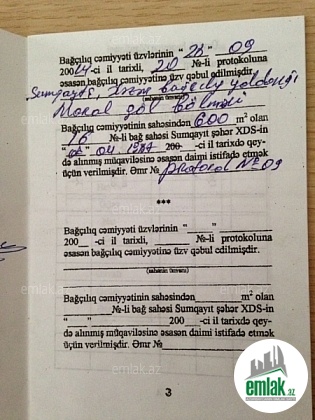 Bağçılıq cəmiyyəti üzvlərinin "28" 09
2004-ci il tarixli, 20 №-li protokoluna
əsasən bağçılıq cəmiyyətinə üzv qəbul edilmişdir.
Sumqayıt,
(sahənin ünvanı)
Bağçılıq cəmiyyətinin sahəsindən 600 m² olan
16 №-li bağ sahəsi Sumqayıt şəhər XDS-in
04 1987 200 -ci il tarixdə qey-
də alınmış müqaviləsinə əsasən daimi istifadə etmək
üçün verilmişdir. Əmr № protokol № 09
***
Bağçılıq cəmiyyəti üzvlərinin "____" ____
200___ -ci il tarixli, ______ №-li protokoluna
əsasən bağçılıq cəmiyyətinə üzv qəbul edilmişdir.
(sahənin ünvanı)
Bağçılıq cəmiyyətinin sahəsindən______m² olan
______№-li bağ sahəsi Sumqayıt şəhər XDS-in
"____"__________200 ___-ci il tarixdə qey-
də alınmış müqaviləsinə əsasən daimi istifadə etmək
üçün verilmişdir. Əmr №__________
3
emlak.az
emlak.az